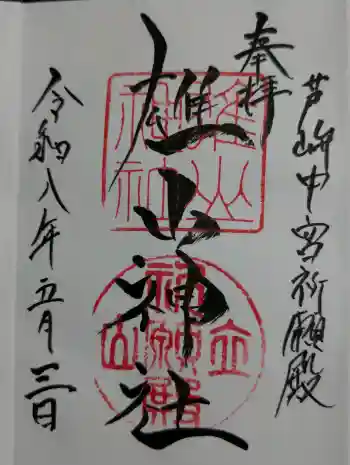 芦峅中宮祈願殿
奉拝
雄山神社
雄山神社
立山
祈願殿
令和八年五月三日